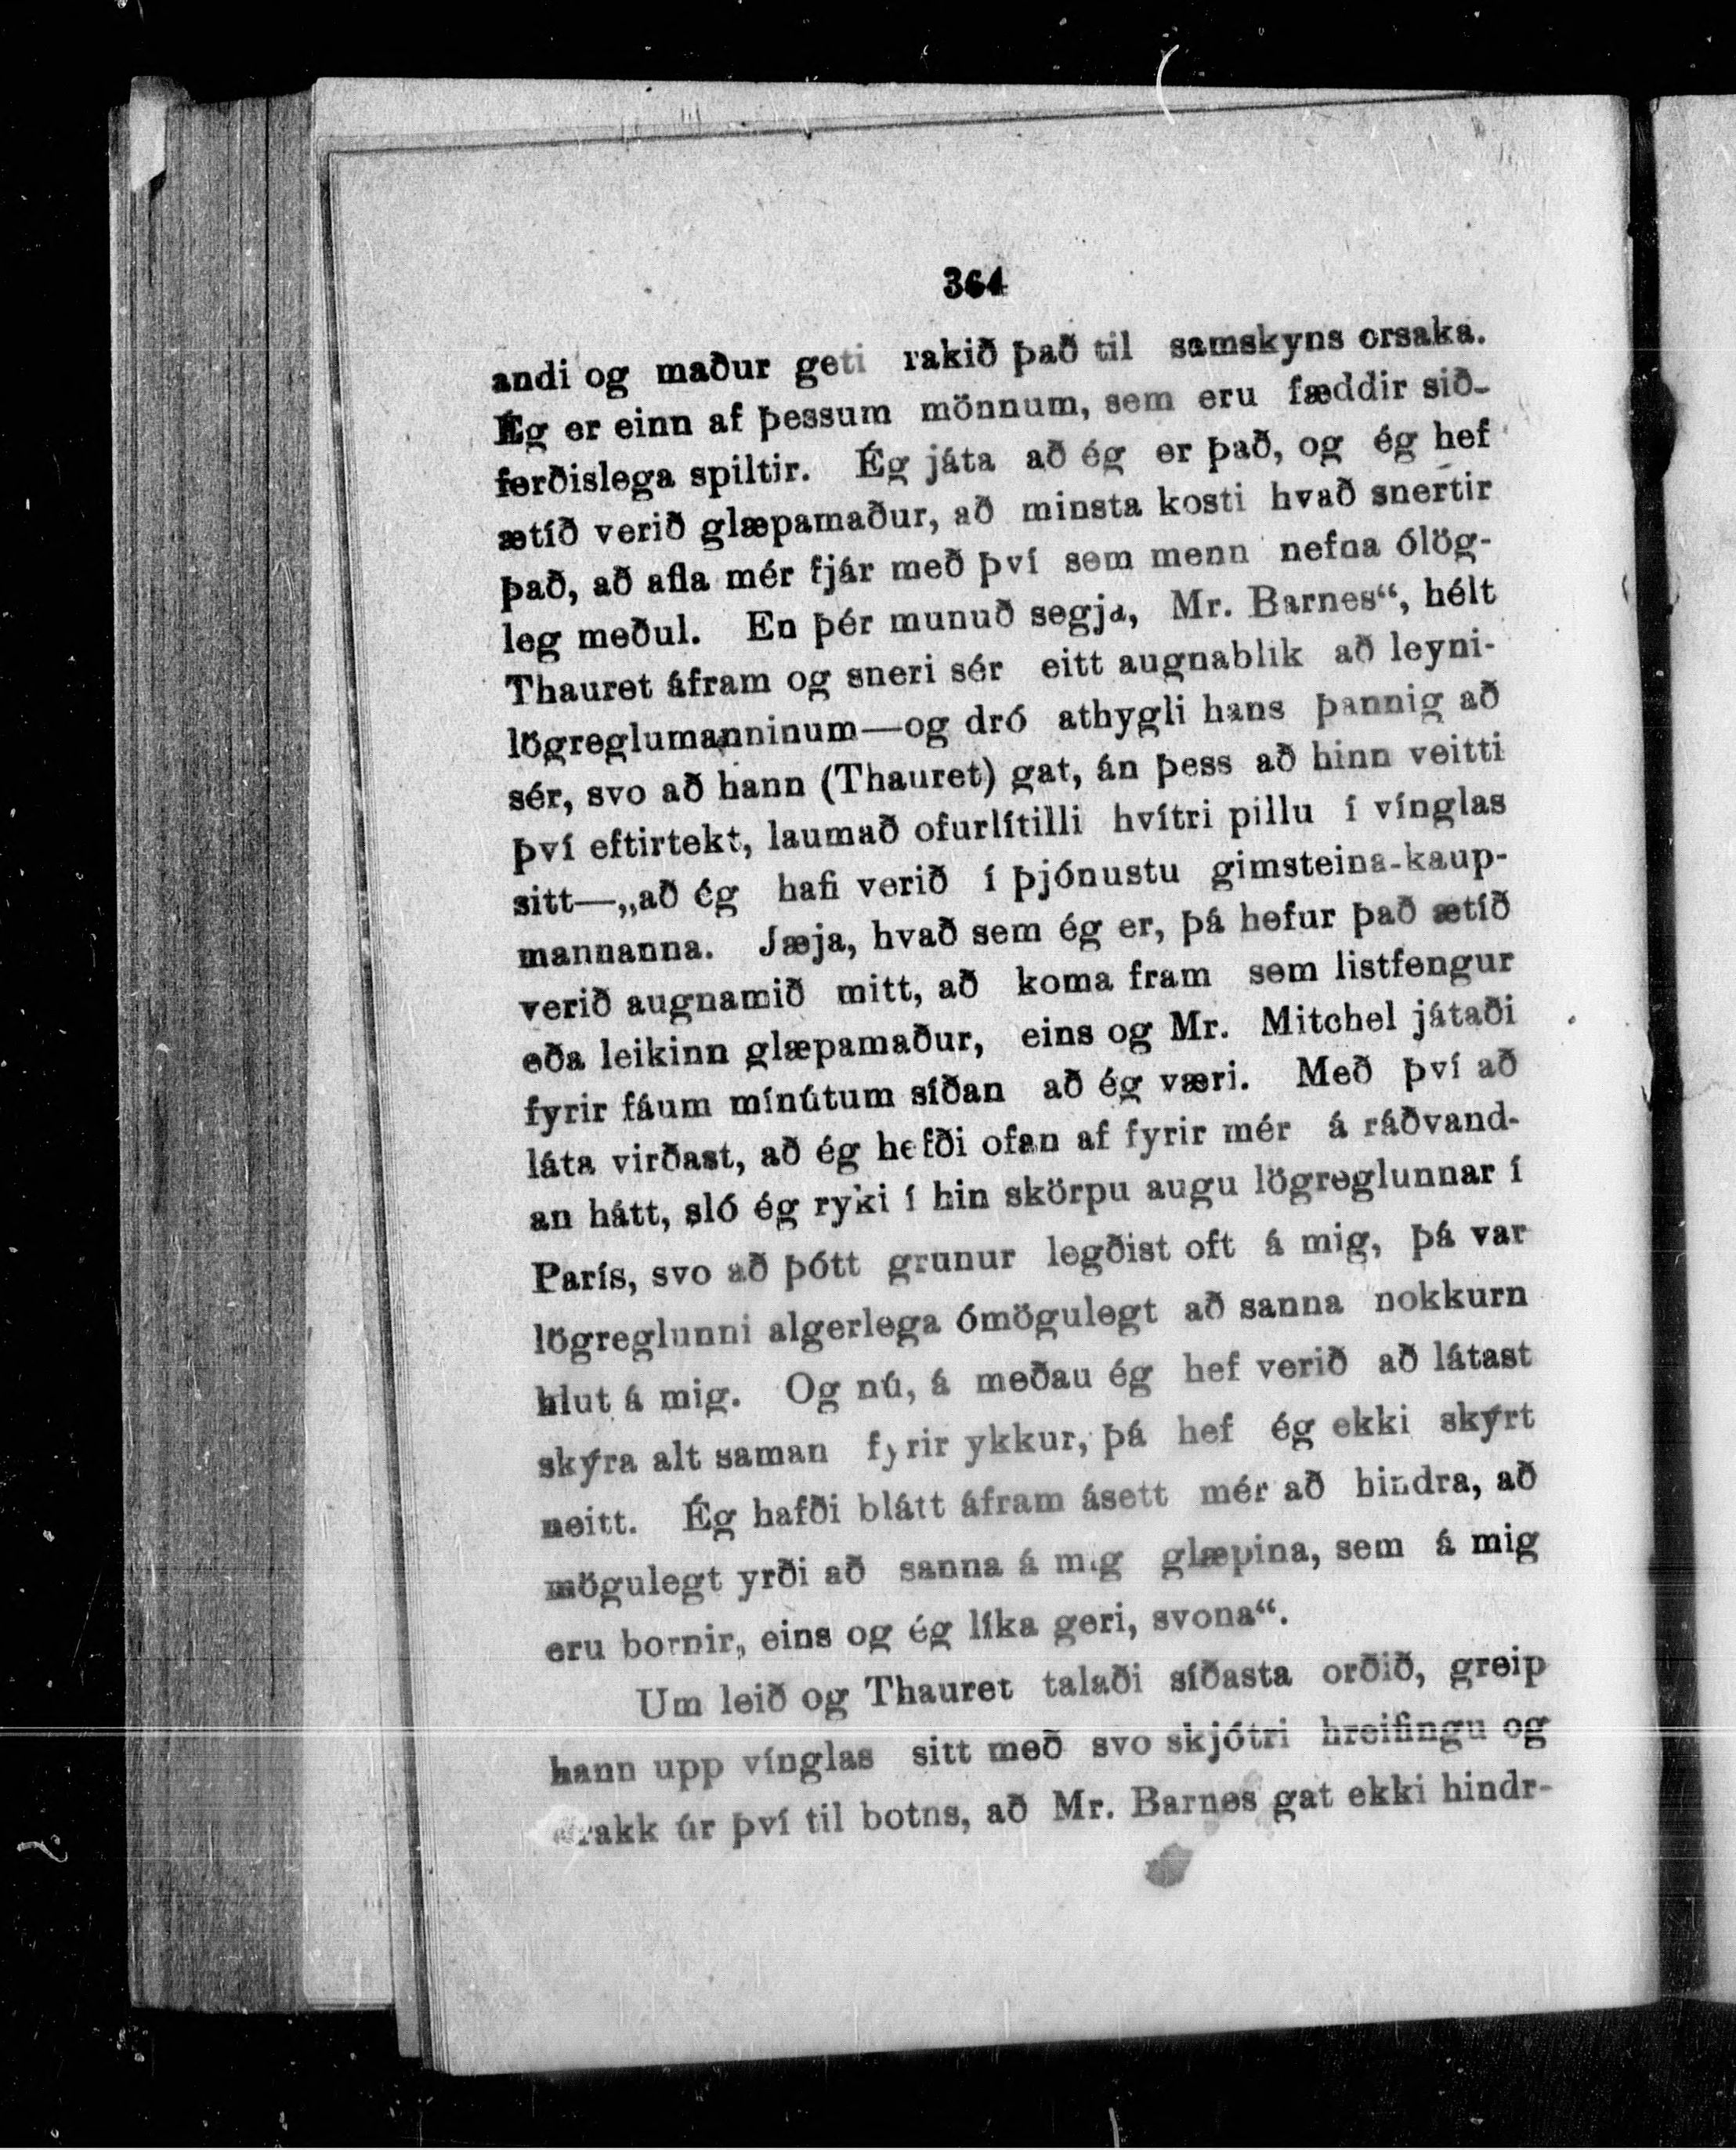 364
andi og maður geti rakið það til samskyns orsaka.
Ég er einn af þessum mönnum, sem eru fæddir sið-
ferðislega spiltir. Ég játa að ég er það, og ég hef
ætíð verið glæpamaður, að minsta kosti hvað snertir
það, að afla mér fjár með því sem menn nefna ólög-
leg meðul. En þér munuð segja, Mr. Barnes“, hélt
Thauret áfram og sneri sér eitt augnablik að leyni-
lögreglumanninum—og dró athygli hans þannig að
sér, svo að hann (Thauret) gat, án þess að hinn veitti
því eftirtekt, laumað ofurlítilli hvítri pillu í vínglas
sitt—„að ég hafi verið í þjónustu gimsteina-kaup-
mannanna. Jæja, hvað sem ég er, þá hefur það ætíð
verið augnamið mitt, að koma fram sem listfengur
eða leikinn glæpamaður, eins og Mr. Mitchel játaði
fyrir fáum mínútum síðan að ég væri. Með því að
láta virðast, að ég hefði ofan af fyrir mér á ráðvand-
an hátt, sló ég ryki í hin skörpu augu lögreglunnar í
París, svo að þótt grunur legðist oft á mig, þá var
lögreglunni algerlega ómögulegt að sanna nokkurn
hlut á mig. Og nú, á meðau ég hef verið að látast
skýra alt saman fyrir ykkur, þá hef ég ekki skýrt
neitt. Ég hafði blátt áfram ásett mér að hindra, að
mögulegt yrði að sanna á mig glæpina, sem á mig
eru bornir, eins og ég líka geri, svona“.
Um leið og Thauret talaði síðasta orðið, greip
hann upp vínglas sitt með svo skjótri hreifingu og
drakk úr því til botns, að Mr. Barnes gat ekki hindr-